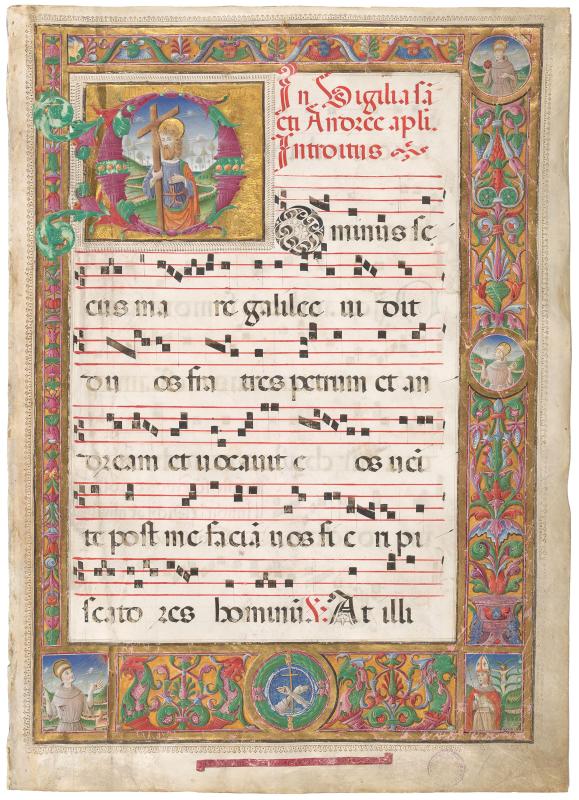 In Vigilia sā
cti Andree apli.
Introitus
Dominus se
cus ma re galilee ui dit
du os fra tres petrum et an
dream et uocauit e os ueni
te post me faciā uos fi e ri pi
scato res hominū V. At illi